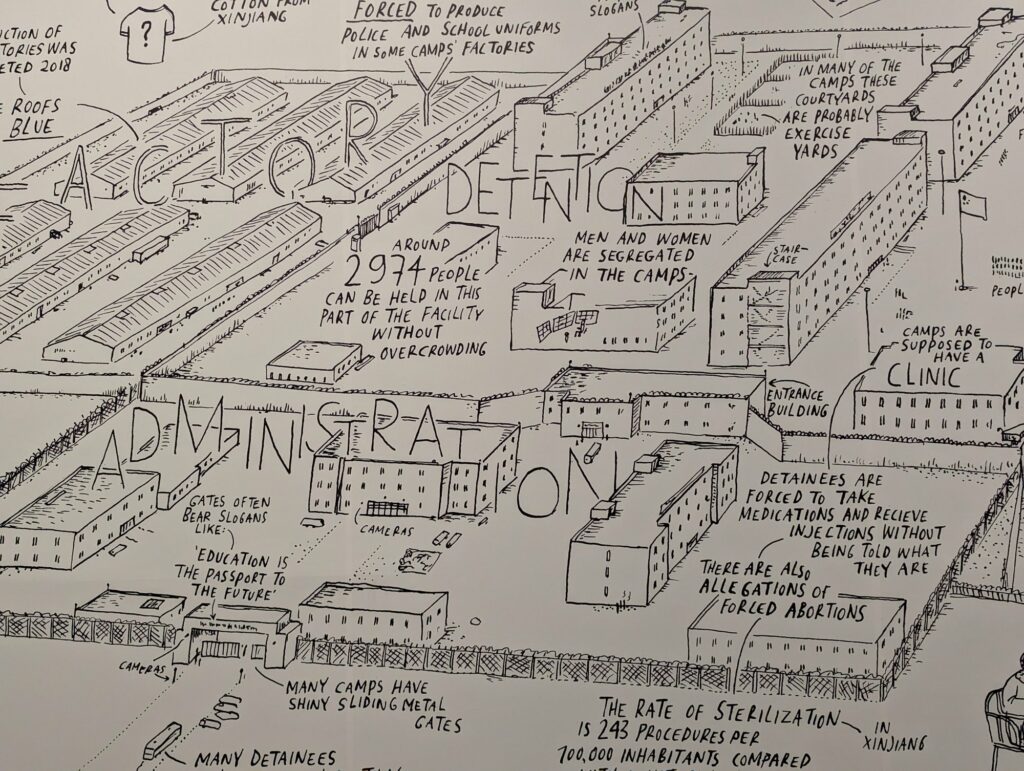 COTTON FROM
XINJIANG
?
FORCED TO PRODUCE
POLICE AND SCHOOL UNIFORMS
IN SOME CAMPS' FACTORIES
SLOGANS
UCTION OF
TORIES WAS
ETED 2018
ROOFS
BLUE
FACTORY
IN MANY OF THE
CAMPS THESE
COURTYARDS
ARE PROBABLY
EXERCISE
YARDS
DETENTION
AROUND
2974 PEOPLE
CAN BE HELD IN THIS
PART OF THE FACILITY
WITHOUT
OVERCROWDING
MEN AND WOMEN
ARE SEGREGATED
IN THE CAMPS
STAIR-
CASE
PEOPL
CAMPS ARE
SUPPOSED TO
HAVE A
CLINIC
ENTRANCE
BUILDING
ADMINISTRATION
GATES OFTEN
BEAR SLOGANS
LIKE:
'EDUCATION IS
THE PASSPORT TO
THE FUTURE'
CAMERAS
DETAINEES ARE
FORCED TO TAKE
MEDICATIONS AND RECIEVE
INJECTIONS WITHOUT
BEING TOLD WHAT
THEY ARE
THERE ARE ALSO
ALLEGATIONS OF
FORCED ABORTIONS
CAMERAS
MANY CAMPS HAVE
SHINY SLIDING METAL
GATES
MANY DETAINEES
THE RATE OF STERILIZATION
IS 243 PROCEDURES PER
100,000 INHABITANTS COMPARED
IN
XINJIANG